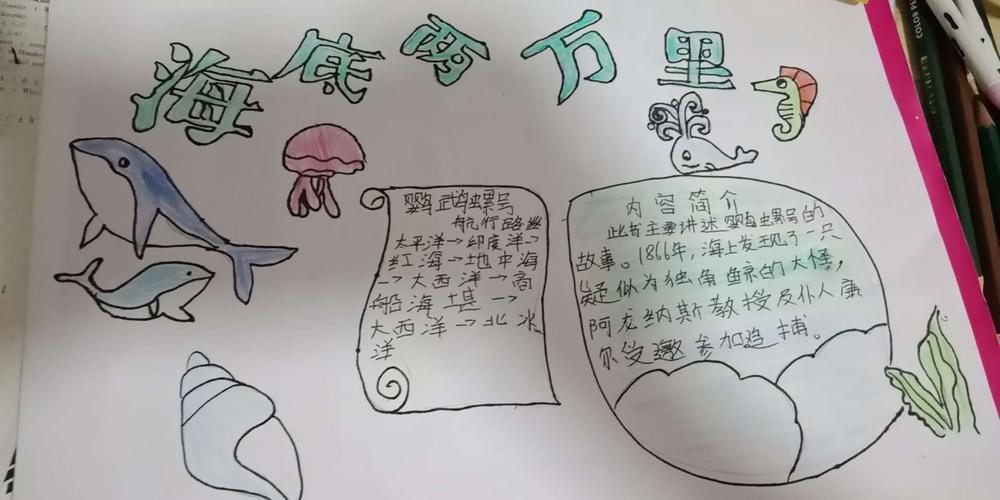 海底两万里
鹦鹉螺号
航行路线
太平洋→印度洋→
红海→地中海
→大西洋→商
船海堪→
大西洋→北冰
洋
内容简介
此书主要讲述鹦螺号的
故事。1866年,海上发现了一只
疑似为独角鲸的大怪,
阿龙纳斯教授及仆人康
尔受邀参加追捕。